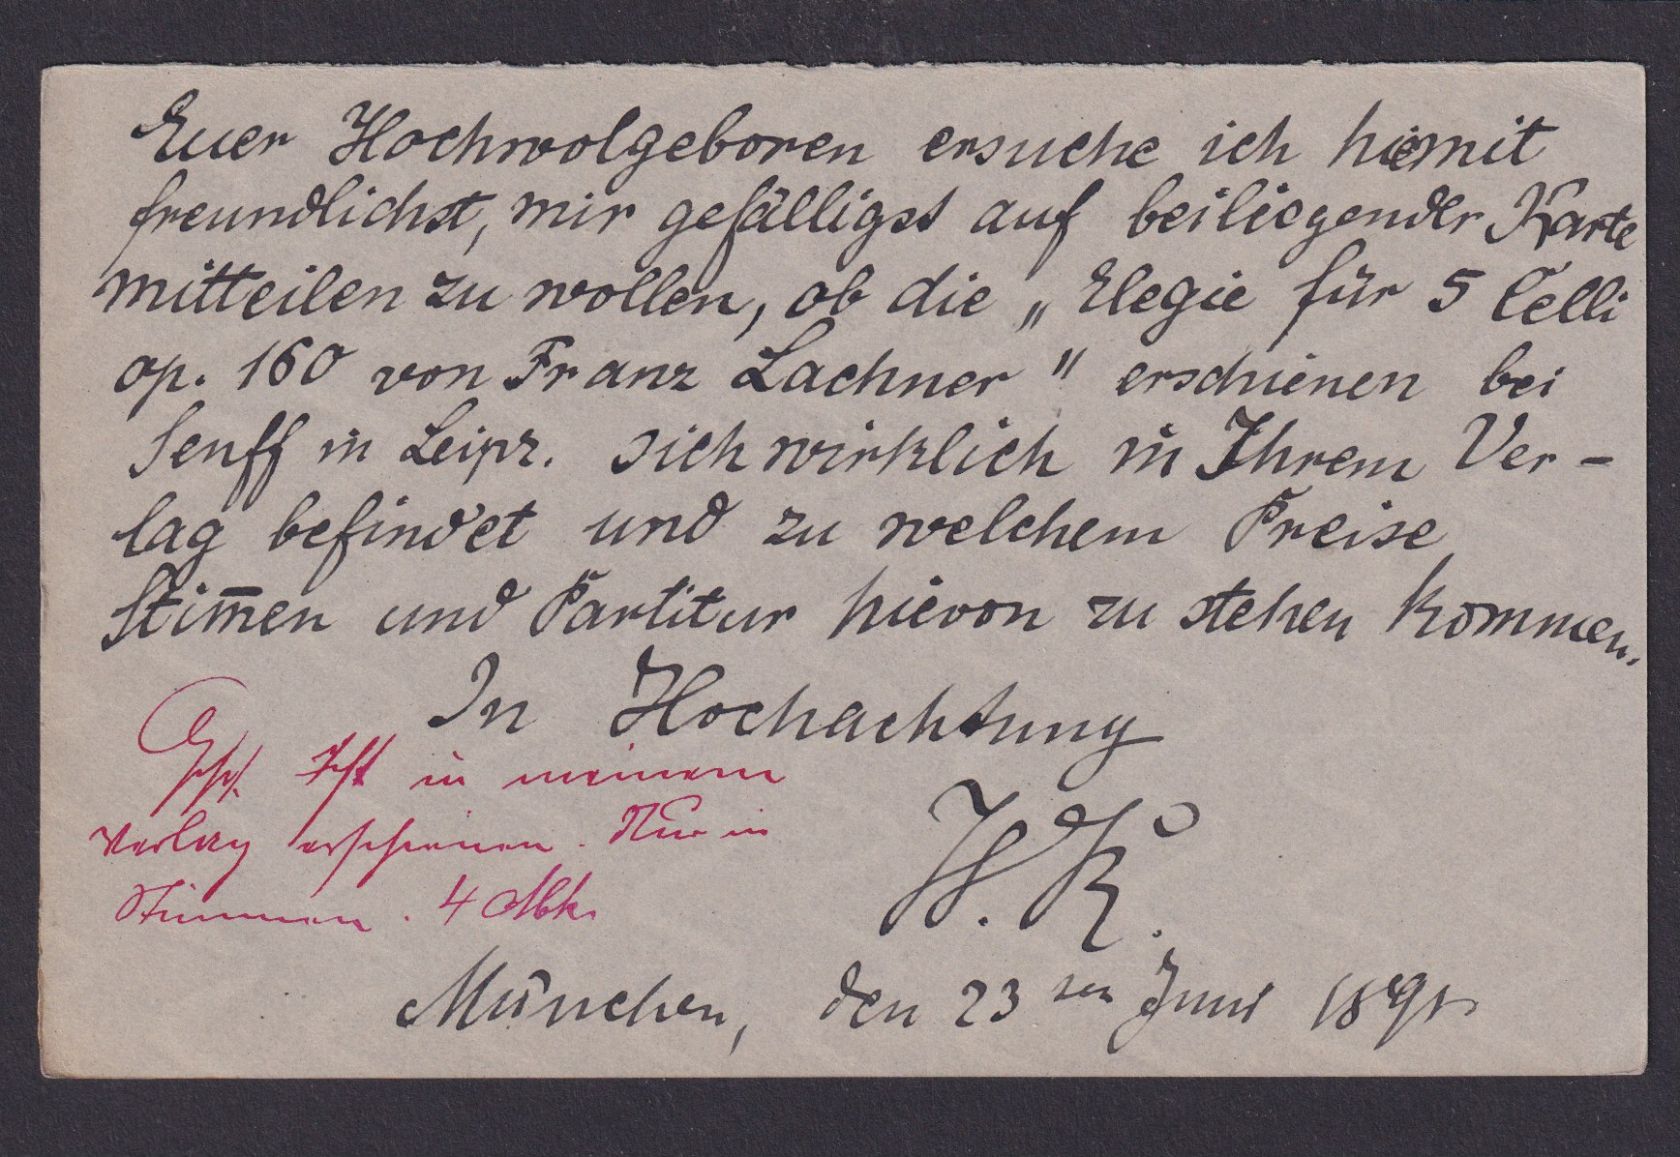 Euer Hochwolgeboren ersuche ich hiemit
freundlichst, mir gefälligst auf beiliegender Karte
mitteilen zu wollen, ob die „Elegie für 5 Celli
op. 160 von Franz Lachner" erschienen bei
Senff in Leipz. sich wirklich in Ihrem Ver-
lag befindet und zu welchem Preise
Stim̅en und Partitur hievon zu stehen kommen.
In Hochachtung
in meinem
Verlag erschienen. Nur in
Stimmen. 4 Mk.
München, den 23ten Juni 1891.